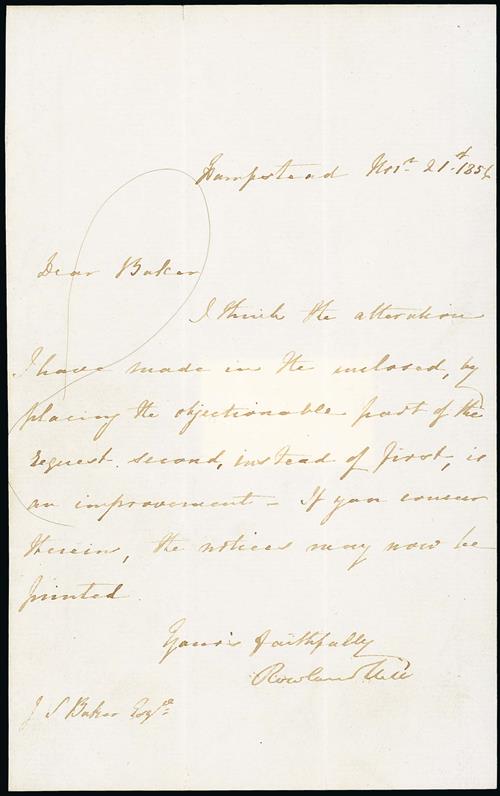 Hampstead Novr. 21st. 1856
Dear Baker
I think the alteration
I have made in the inclosed, by
placing the objectionable part of the
request second, instead of first, is
an improvement – If you concur
therein, the notices may now be
printed.
Yours faithfully
Rowland Hill
J S Baker Esqre